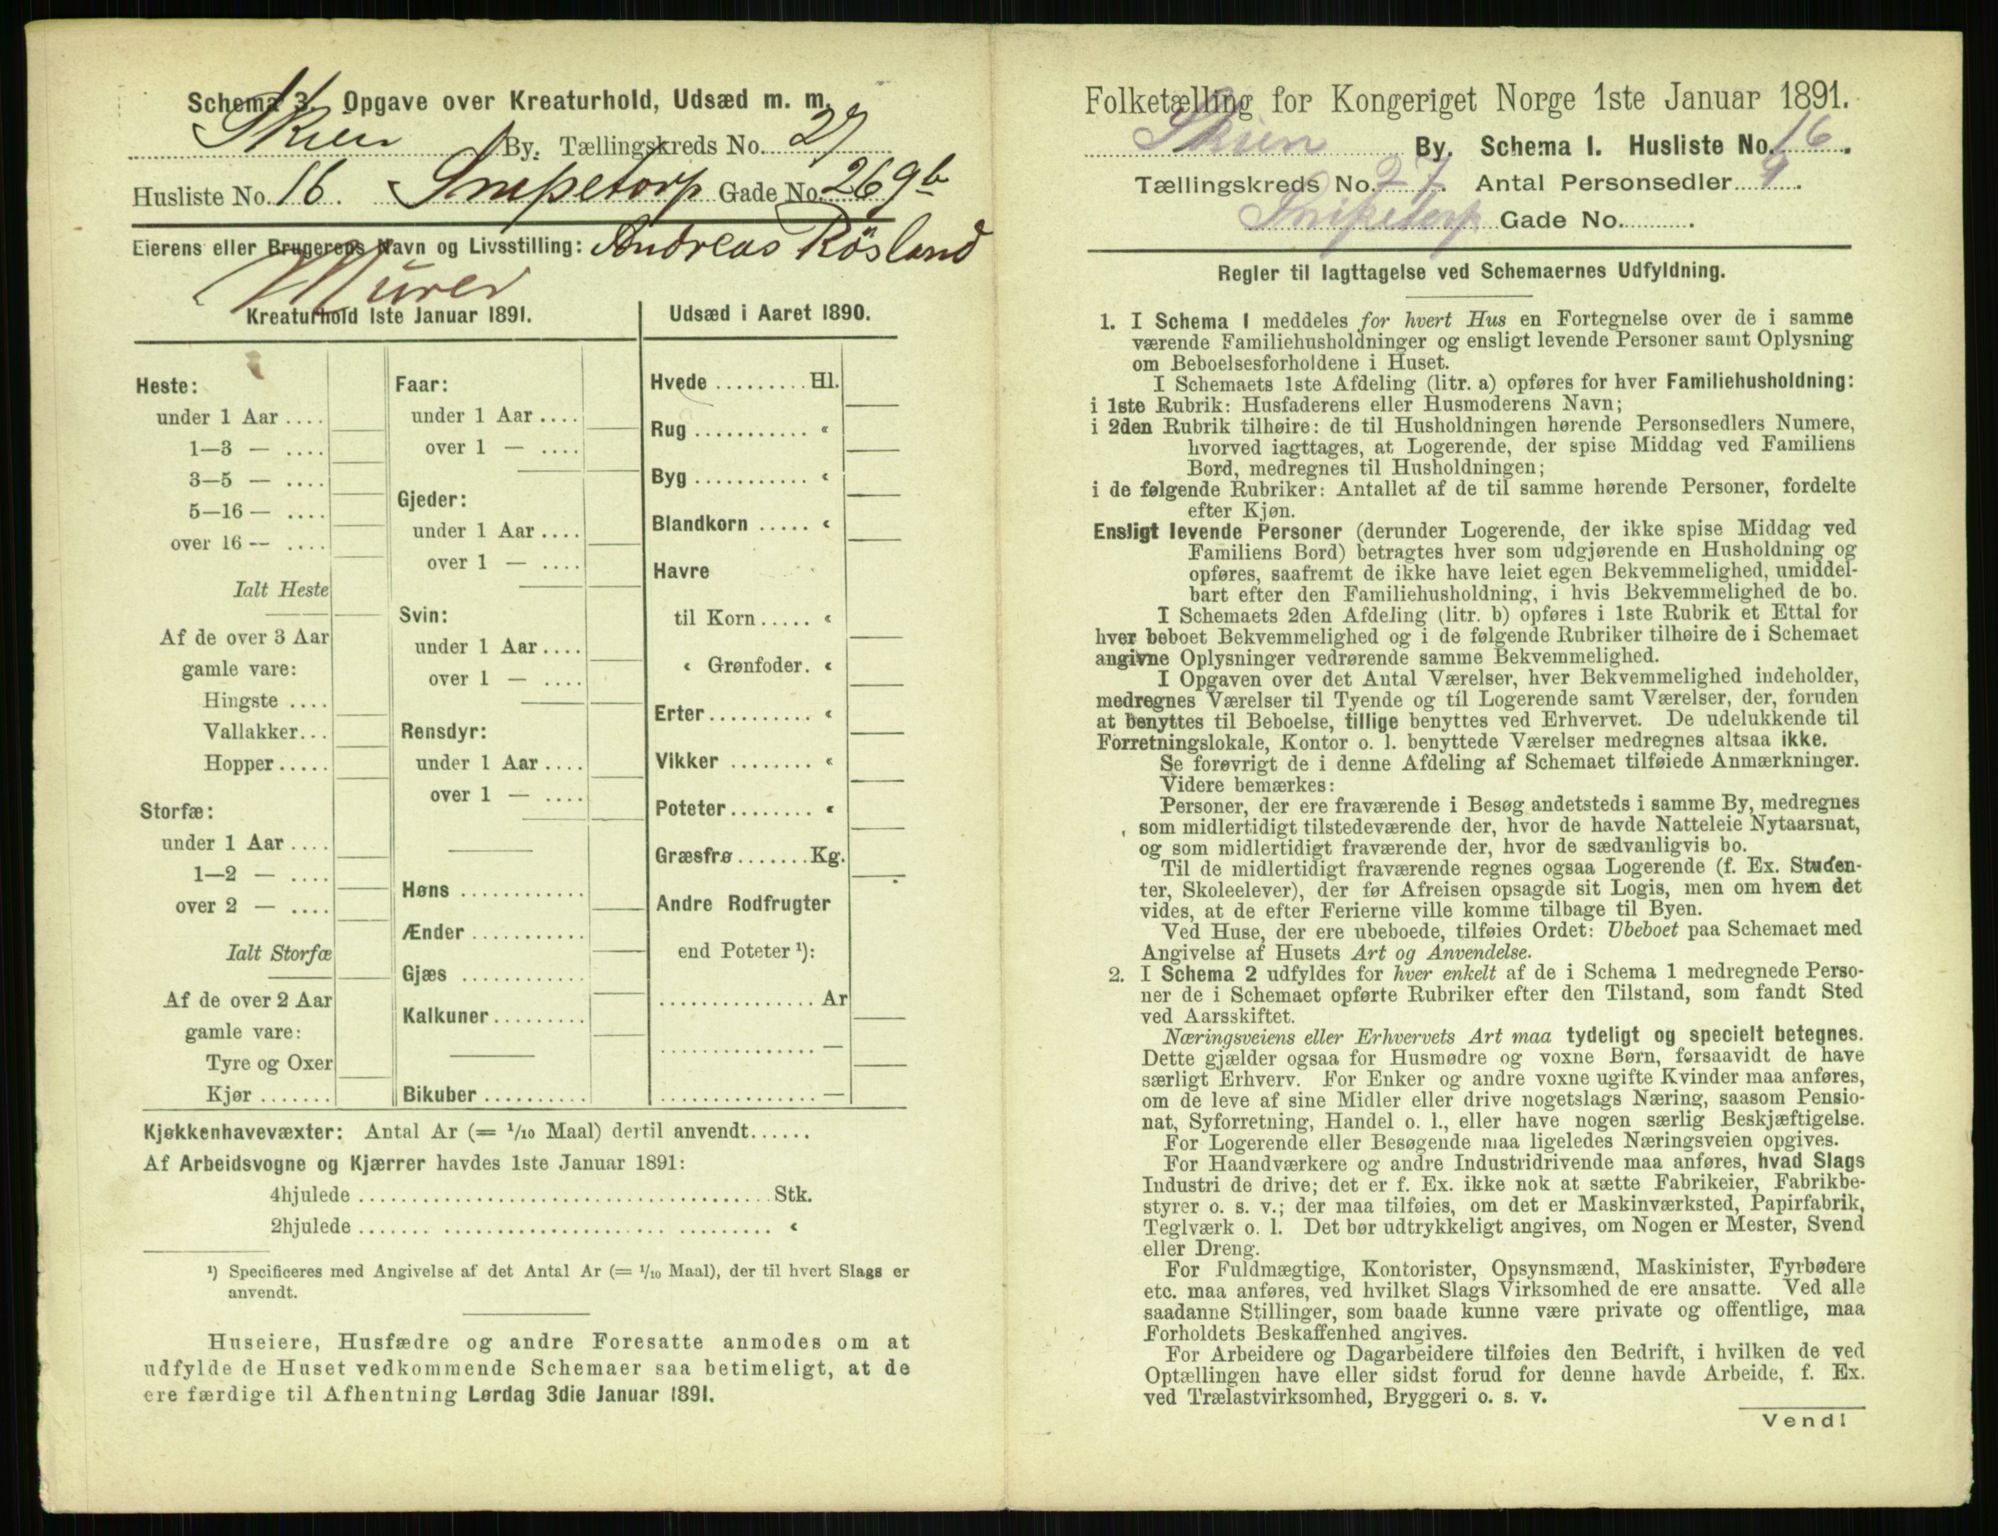 Schema 3. Opgave over Kreaturhold, Udsæd m. m.
Skien By. Tællingskreds No. 27
Husliste No. 16. Snipetorp Gade No. 269b
Eierens eller Brugerens Navn og Livsstilling: Andreas Røsland
Murer
Kreaturhold 1ste Januar 1891.
Heste:
under 1 Aar ....
1—3 — ....
3—5 — ....
5—16 — ....
over 16 — ....
Ialt Heste
Af de over 3 Aar
gamle vare:
Hingste ....
Vallakker...
Hopper.....
Storfæ:
under 1 Aar ....
1—2 — ....
over 2 — ....
Ialt Storfæ
Af de over 2 Aar
gamle vare:
Tyre og Oxer
Kjør .......
Faar:
under 1 Aar ....
over 1 — ....
Gjeder:
under 1 Aar ....
over 1 — ....
Svin:
under 1 Aar ....
over 1 — ....
Rensdyr:
under 1 Aar ....
over 1 — ....
Høns ............
Ænder ...........
Gjæs ............
Kalkuner.........
Bikuber ..........
Udsæd i Aaret 1890.
Hvede .........Hl.
Rug ........... «
Byg ........... «
Blandkorn ..... «
Havre
til Korn..... «
« Grønfoder. «
Erter.......... «
Vikker ........ «
Poteter........ «
Græsfrø.......Kg.
Andre Rodfrugter
end Poteter ¹):
............... Ar
............... —
............... —
Kjøkkenhavevæxter: Antal Ar (= 1/10 Maal) dertil anvendt......
Af Arbeidsvogne og Kjærrer havdes 1ste Januar 1891:
4hjulede ..................................... Stk.
2hjulede ..................................... «
¹) Specificeres med Angivelse af det Antal Ar (= 1/10 Maal), der til hvert Slags er
anvendt.
Huseiere, Husfædre og andre Foresatte anmodes om at
udfylde de Huset vedkommende Schemaer saa betimeligt, at de
ere færdige til Afhentning Lørdag 3die Januar 1891.
Folketælling for Kongeriget Norge 1ste Januar 1891.
Skien By. Schema I. Husliste No. 16.
Tællingskreds No. 27. Antal Personsedler 9.
Snipetorp Gade No.........
Regler til Iagttagelse ved Schemaernes Udfyldning.
1. I Schema 1 meddeles for hvert Hus en Fortegnelse over de i samme
værende Familiehusholdninger og ensligt levende Personer samt Oplysning
om Beboelsesforholdene i Huset.
I Schemaets 1ste Afdeling (litr. a) opføres for hver Familiehusholdning:
i 1ste Rubrik: Husfaderens eller Husmoderens Navn;
i 2den Rubrik tilhøire: de til Husholdningen hørende Personsedlers Numere,
hvorved iagttages, at Logerende, der spise Middag ved Familiens
Bord, medregnes til Husholdningen;
i de følgende Rubriker: Antallet af de til samme hørende Personer, fordelte
efter Kjøn.
Ensligt levende Personer (derunder Logerende, der ikke spise Middag ved
Familiens Bord) betragtes hver som udgjørende en Husholdning og
opføres, saafremt de ikke have leiet egen Bekvemmelighed, umiddel-
bart efter den Familiehusholdning, i hvis Bekvemmelighed de bo.
I Schemaets 2den Afdeling (litr. b) opføres i 1ste Rubrik et Ettal for
hver beboet Bekvemmelighed og i de følgende Rubriker tilhøire de i Schemaet
angivne Oplysninger vedrørende samme Bekvemmelighed.
I Opgaven over det Antal Værelser, hver Bekvemmelighed indeholder,
medregnes Værelser til Tyende og til Logerende samt Værelser, der, foruden
at benyttes til Beboelse, tillige benyttes ved Erhvervet. De udelukkende til
Forretningslokale, Kontor o. l. benyttede Værelser medregnes altsaa ikke.
Se forøvrigt de i denne Afdeling af Schemaet tilføiede Anmærkninger.
Videre bemærkes:
Personer, der ere fraværende i Besøg andetsteds i samme By, medregnes
som midlertidigt tilstedeværende der, hvor de havde Natteleie Nytaarsnat,
og som midlertidigt fraværende der, hvor de sædvanligvis bo.
Til de midlertidigt fraværende regnes ogsaa Logerende (f. Ex. Studen-
ter, Skoleelever), der før Afreisen opsagde sit Logis, men om hvem det
vides, at de efter Ferierne ville komme tilbage til Byen.
Ved Huse, der ere ubeboede, tilføies Ordet: Ubeboet paa Schemaet med
Angivelse af Husets Art og Anvendelse.
2. I Schema 2 udfyldes for hver enkelt af de i Schema 1 medregnede Perso-
ner de i Schemaet opførte Rubriker efter den Tilstand, som fandt Sted
ved Aarsskiftet.
Næringsveiens eller Erhvervets Art maa tydeligt og specielt betegnes.
Dette gjælder ogsaa for Husmødre og voxne Børn, forsaavidt de have
særligt Erhverv. For Enker og andre voxne ugifte Kvinder maa anføres,
om de leve af sine Midler eller drive nogetslags Næring, saasom Pensio-
nat, Syforretning, Handel o. l., eller have nogen særlig Beskjæftigelse.
For Logerende eller Besøgende maa ligeledes Næringsveien opgives.
For Haandværkere og andre Industridrivende maa anføres, hvad Slags
Industri de drive; det er f. Ex. ikke nok at sætte Fabrikeier, Fabrikbe-
styrer o. s. v.; der maa tilføies, om det er Maskinværksted, Papirfabrik,
Teglværk o. l. Det bør udtrykkeligt angives, om Nogen er Mester, Svend
eller Dreng.
For Fuldmægtige, Kontorister, Opsynsmænd, Maskinister, Fyrbødere
etc. maa anføres, ved hvilket Slags Virksomhed de ere ansatte. Ved alle
saadanne Stillinger, som baade kunne være private og offentlige, maa
Forholdets Beskaffenhed angives.
For Arbeidere og Dagarbeidere tilføies den Bedrift, i hvilken de ved
Optællingen have eller sidst forud for denne havde Arbeide, f. Ex.
ved Trælastvirksomhed, Bryggeri o. s. v.
Vend!